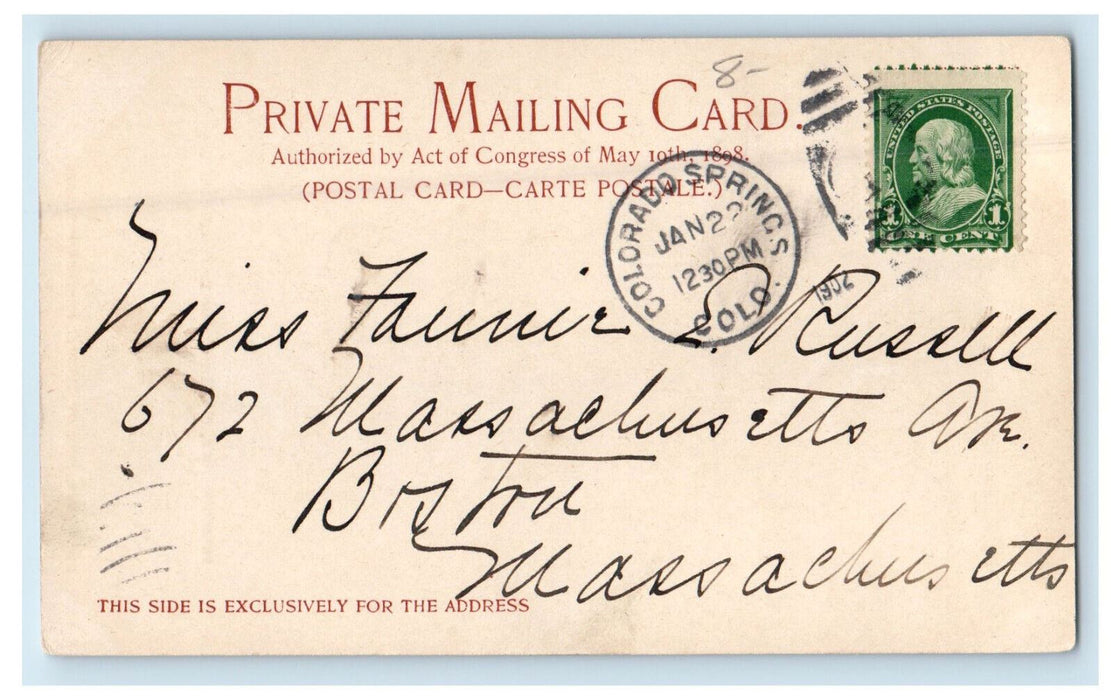 8-
PRIVATE MAILING CARD.
Authorized by Act of Congress of May 10th, 1898.
(POSTAL CARD—CARTE POSTALE.)
UNITED STATES POSTAGE
1 1
ONE CENT
COLORADO SPRINGS
JAN 2
1230PM
COLO.
1902
Miss Fannie E. Russell
672 Massachusetts Ave.
Boston
Massachusetts
THIS SIDE IS EXCLUSIVELY FOR THE ADDRESS